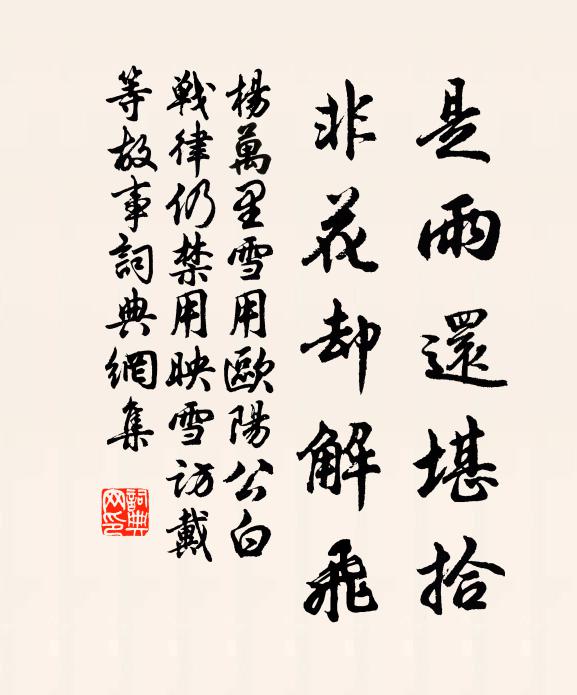 是雨還堪拾
非花却解飛
楊萬里雪用歐陽公白
戦律仍禁用映雪访戴
等故事詞典網集
詞典网印